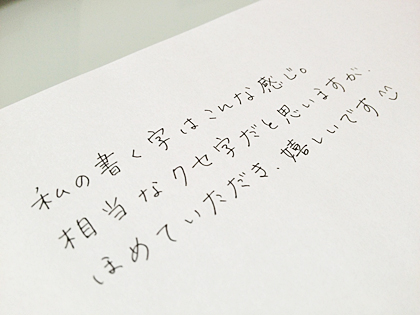 私の書く字はこんな感じ。
相当なクセ字だと思いますが、
ほめていただき、嬉しいです